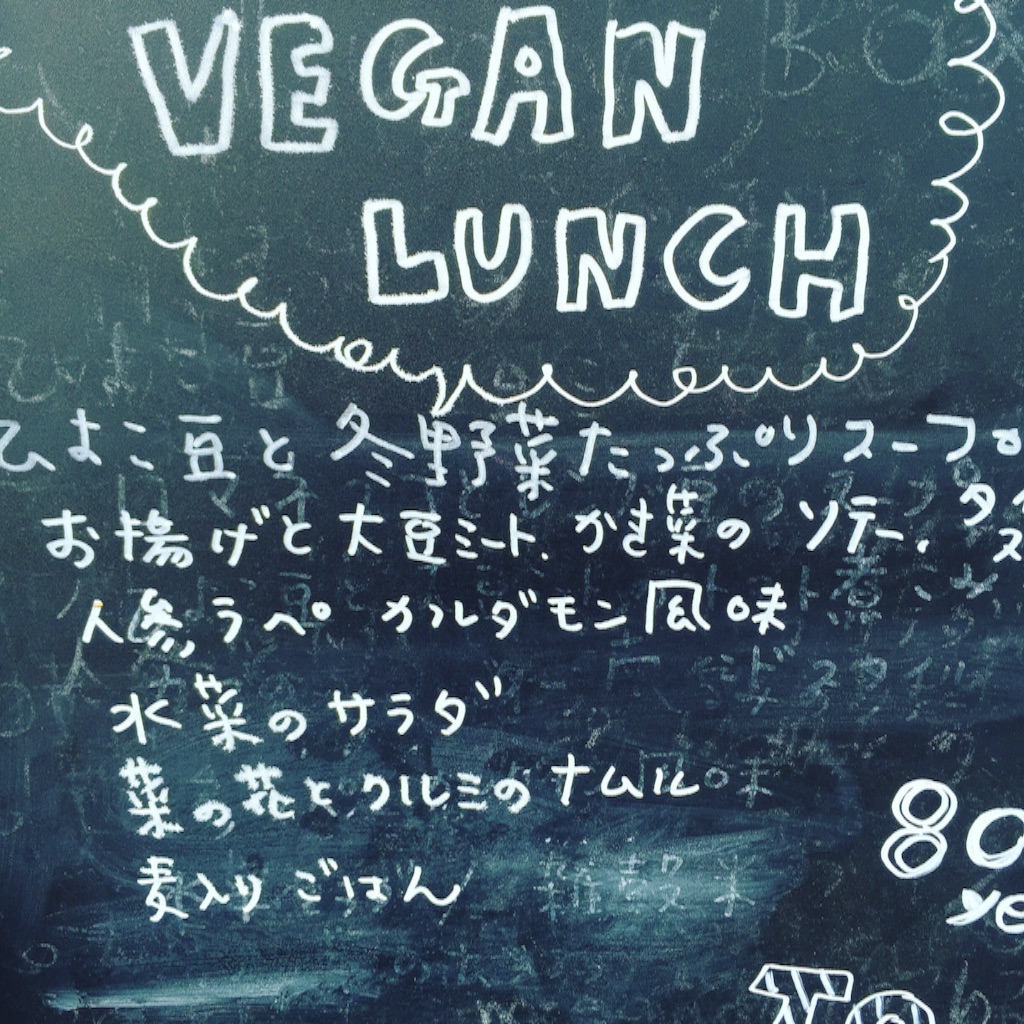 VEGAN
LUNCH
ひよこ豆と冬野菜たっぷりスープ
お揚げと大豆ミート、かき菜のソテー、タイ
ス
人参ラペ カルダモン風味
水菜のサラダ
菜の花とクルミのナムル
麦入りごはん
80
ye
To